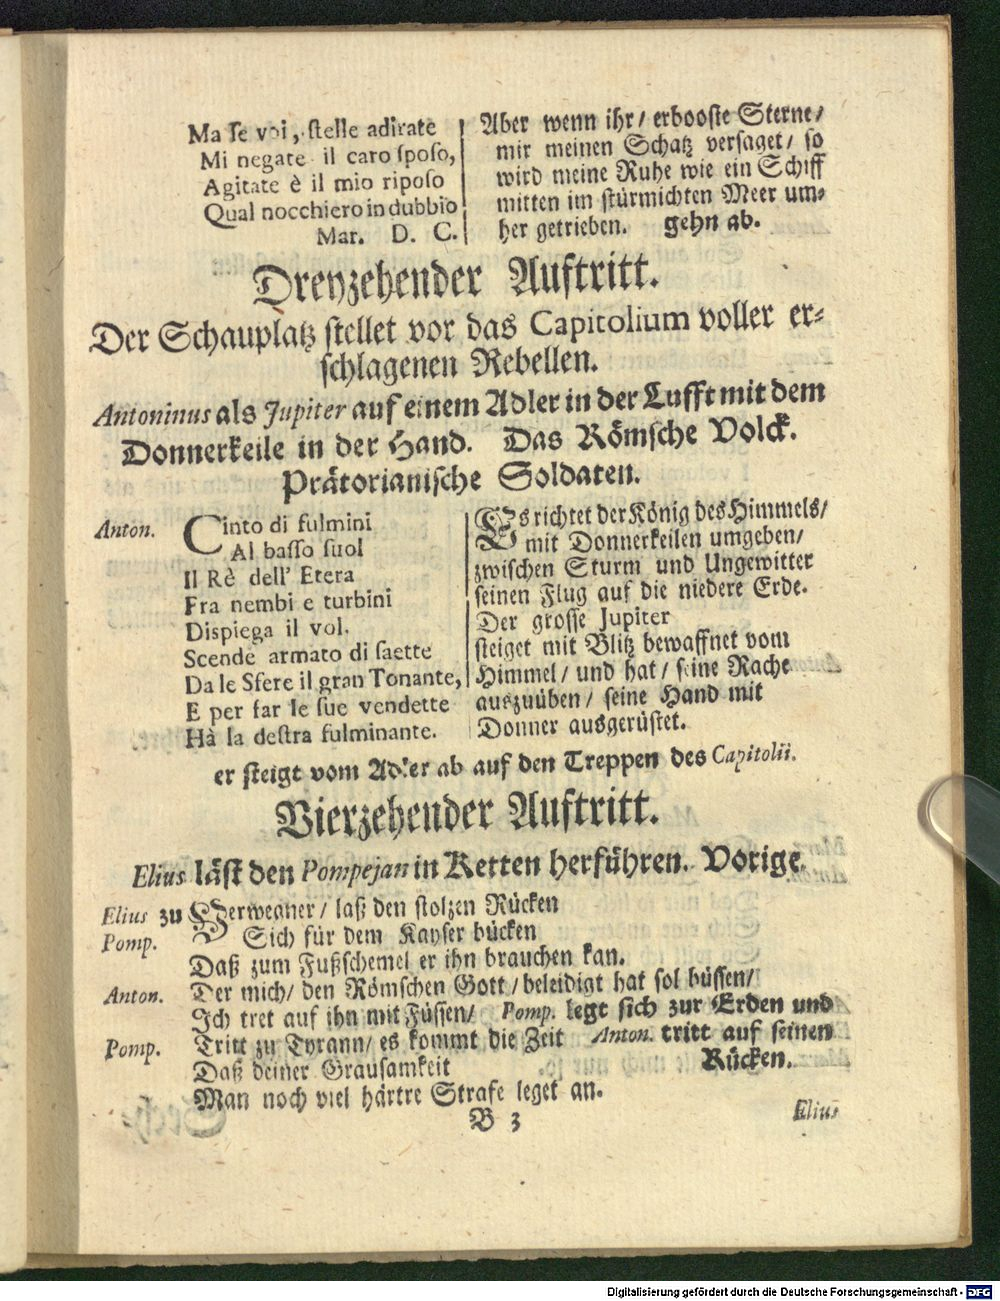 Ma se voi, stelle adirate
Mi negate il caro sposo,
Agitate è il mio riposo
Qual nocchiero in dubbio
Mar. D. C.
Aber wenn ihr/ erbooste Sterne/
mir meinen Schatz versaget/ so
wird meine Ruhe wie ein Schiff
mitten im stürmichten Meer um-
her getrieben. gehn ab.
Dreyzehender Auftritt.
Der Schauplatz stellet vor das Capitolium voller er-
schlagenen Rebellen.
Antoninus als Jupiter auf einem Adler in der Lufft mit dem
Donnerkeile in der Hand. Das Römsche Volck.
Prätorianische Soldaten.
Anton. Cinto di fulmini
Al basso suol
Il Rè dell' Etera
Fra nembi e turbini
Dispiega il vol.
Scende armato di saette
Da le Sfere il gran Tonante,
E per far le sue vendette
Hà la destra fulminante.
Es richtet der König des Himmels/
mit Donnerkeilen umgeben/
zwischen Sturm und Ungewitter
seinen Flug auf die niedere Erde.
Der grosse Jupiter
steiget mit Blitz bewaffnet vom
Himmel/ und hat/ seine Rache
auszuüben/ seine Hand mit
Donner ausgerüstet.
er steigt vom Adler ab auf den Treppen des Capitolii.
Vierzehender Auftritt.
Elius läst den Pompejan in Ketten herführen. Vorige.
Elius zu Verwegner/ laß den stolzen Rücken
Pomp. Sich für dem Kayser bücken
Daß zum Fußschemel er ihn brauchen kan.
Anton. Der mich/ den Römschen Gott/ beleidigt hat sol büssen/
Ich tret auf ihn mit Füssen/ Pomp. legt sich zur Erden und
Pomp. Tritt zu Tyrann/ es kommt die Zeit Anton. tritt auf seinen
Daß deiner Grausamkeit Rücken.
Man noch viel härtre Strafe leget an.
B 3
Elius
Digitalisierung gefördert durch die Deutsche Forschungsgemeinschaft - DFG